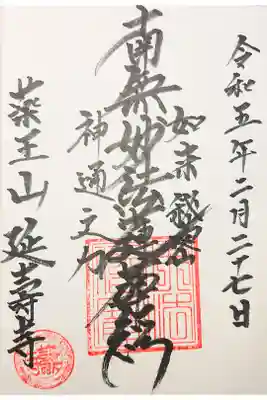 令和五年二月二十七日
如来秘密
南無妙法蓮華経
神通之力
薬王山 延壽寺